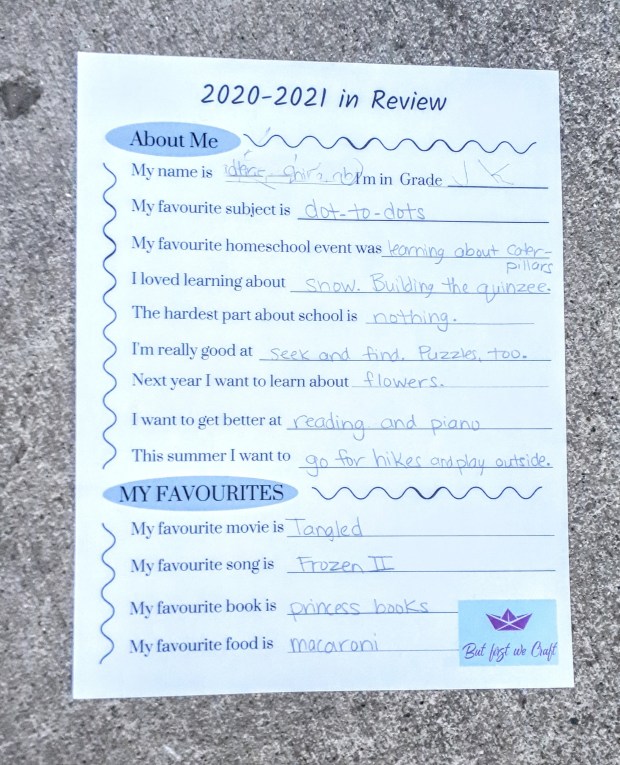 2020-2021 in Review
About Me
My name is I'm in Grade JK
My favourite subject is dot-to-dots
My favourite homeschool event was learning about cater-
pillars
I loved learning about snow. Building the quinzee.
The hardest part about school is nothing.
I'm really good at seek and find. Puzzles, too.
Next year I want to learn about flowers.
I want to get better at reading and piano
This summer I want to go for hikes and play outside.
MY FAVOURITES
My favourite movie is Tangled
My favourite song is Frozen II
My favourite book is princess books
My favourite food is macaroni
But first we Craft